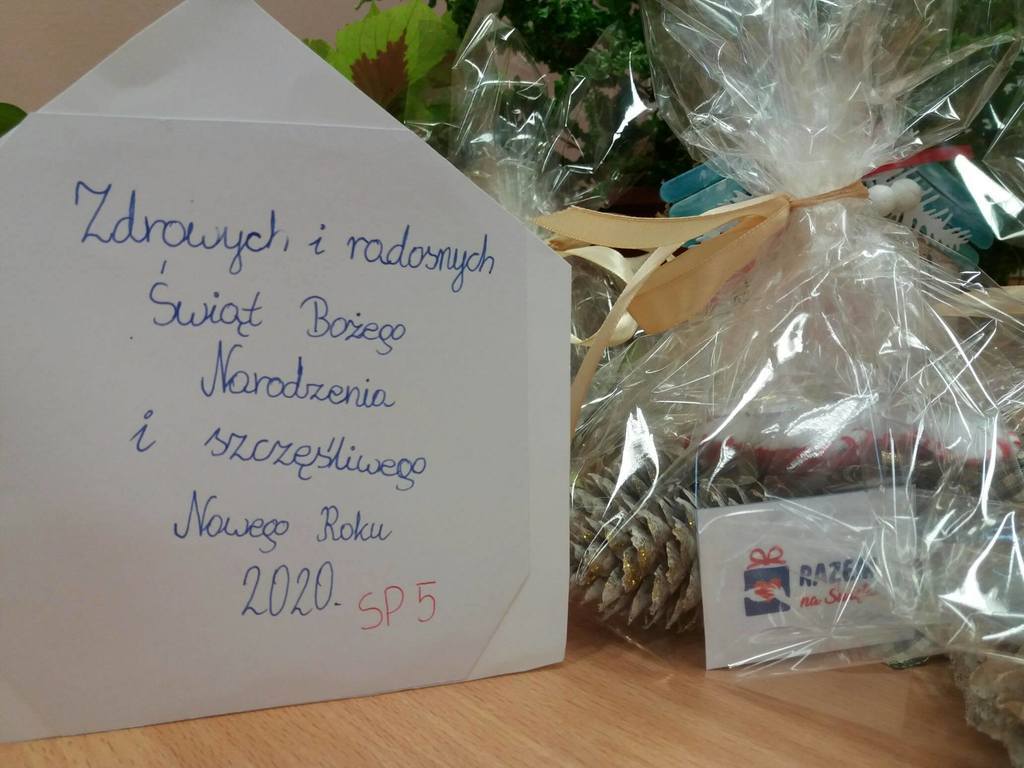 Zdrowych i radosnych
Świąt Bożego
Narodzenia
i szczęśliwego
Nowego Roku
2020. SP5
na